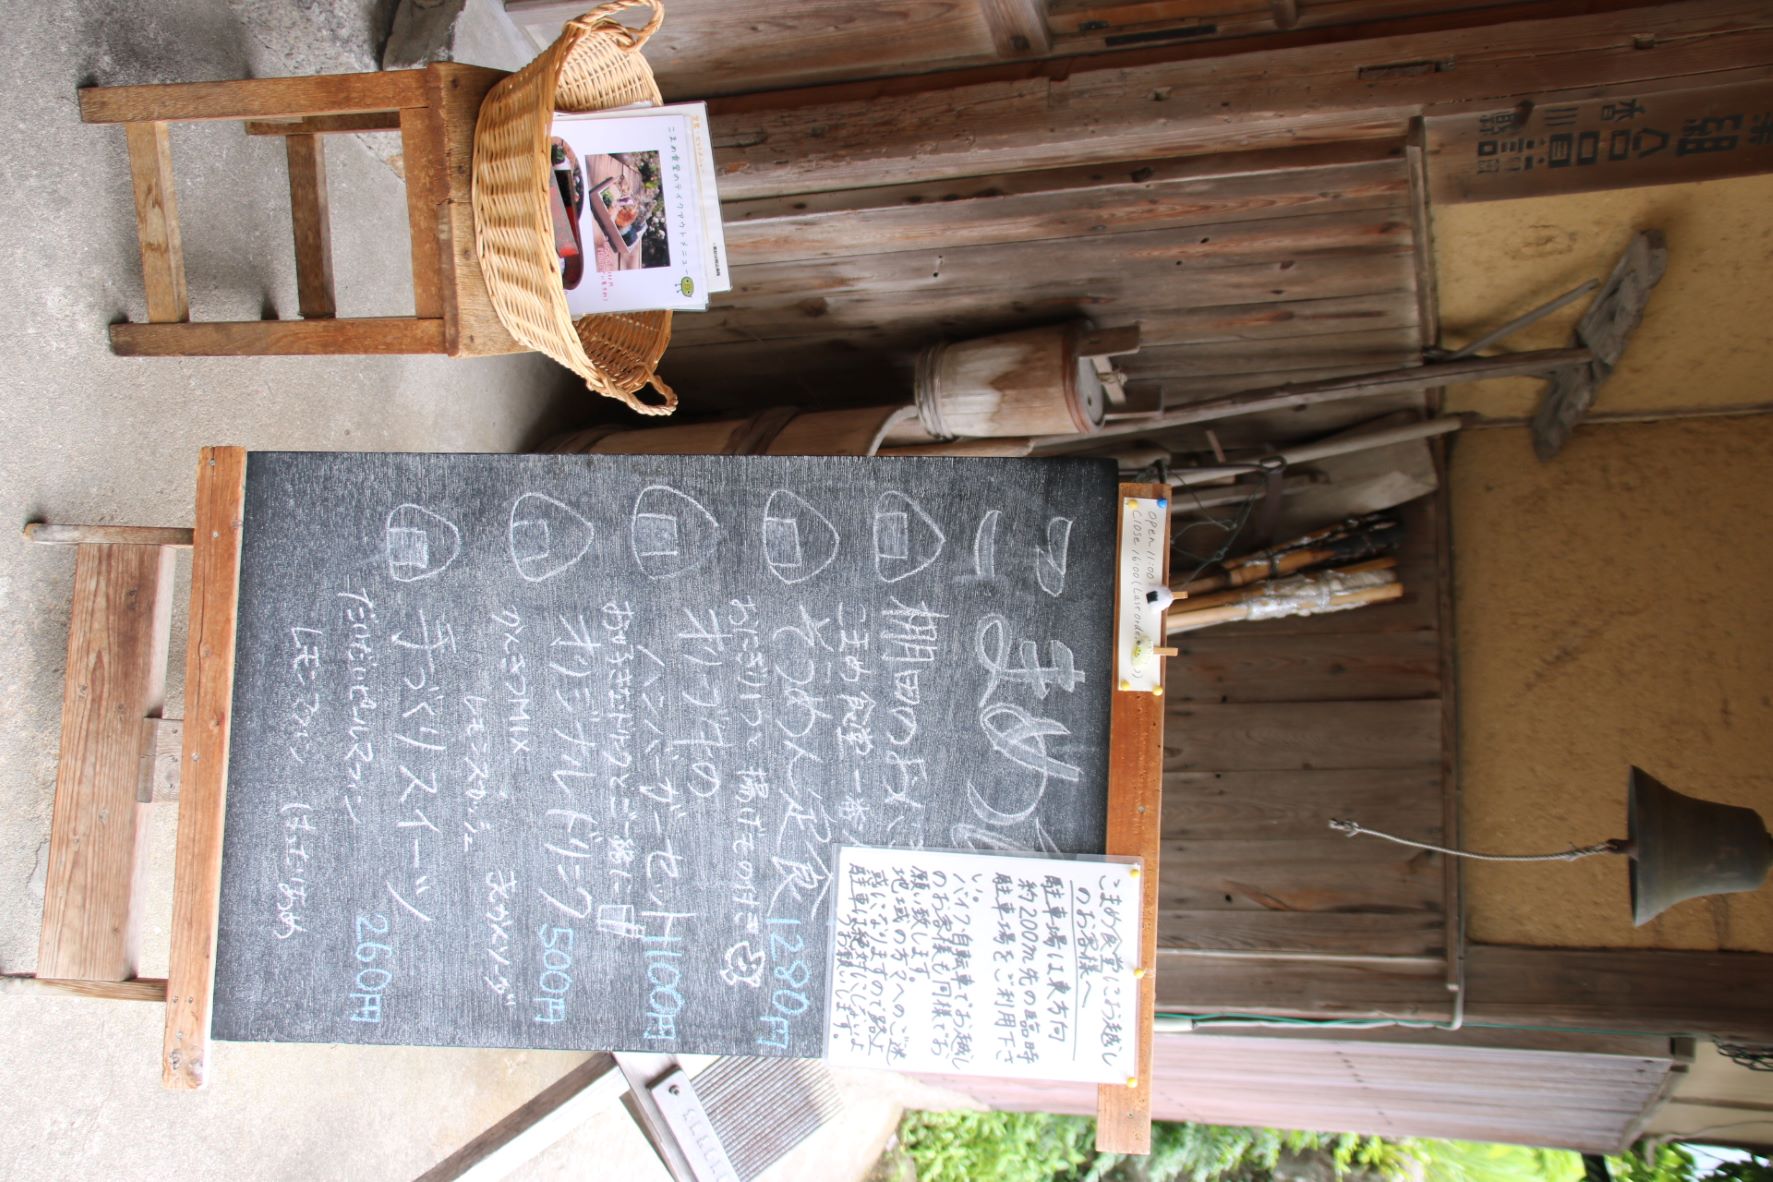 Open 11:00
Close 16:00 (Last order
こまめ
棚田の
こまめ食堂一番
そうめん定食 1280円
おにぎり1つと揚げもの付き
オリーブ牛の
ハンバーガーセット 1100円
お好きなドリンクとご一緒に
オリジナルドリンク 500円
かんきつMIX
レモンスカッシュ
手づくりスイーツ 260円
だいだいピールマフィン
レモンマフィン
こまめ食堂にお越し
のお客様へ
駐車場は東方向
約200m先の臨時
駐車場をご利用下さ
い。
バイク、自転車でお越し
のお客様も同様でお
願い致します。
地域の方々へのご迷
惑になりますので路上
駐車は絶対にしないよ
うお願いします。
こまめ食堂のテイクアウトメニュー